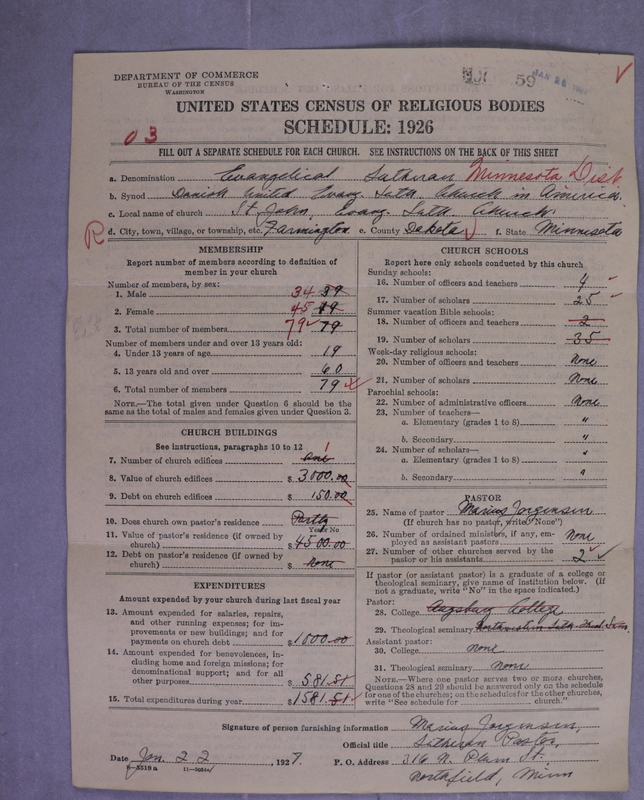 DEPARTMENT OF COMMERCE
BUREAU OF THE CENSUS
WASHINGTON
59 JAN 26
UNITED STATES CENSUS OF RELIGIOUS BODIES
SCHEDULE: 1926
03
FILL OUT A SEPARATE SCHEDULE FOR EACH CHURCH. SEE INSTRUCTIONS ON THE BACK OF THIS SHEET
a. Denomination Evangelical Lutheran Minnesota Dist
b. Synod Danish United Evang. Luth. Church in America.
c. Local name of church St. John, Evang. Luth. Church.
R d. City, town, village, or township, etc. Farmington e. County Dakota f. State Minnesota
MEMBERSHIP
Report number of members according to definition of
member in your church
Number of members, by sex:
1. Male 34 39
2. Female 45
3. Total number of members 79 79
Number of members under and over 13 years old:
4. Under 13 years of age 19
5. 13 years old and over 60
6. Total number of members 79
NOTE.—The total given under Question 6 should be the
same as the total of males and females given under Question 3.
CHURCH BUILDINGS
See instructions, paragraphs 10 to 12
7. Number of church edifices one 1
8. Value of church edifices $ 3000.00
9. Debt on church edifices $ 150.00
10. Does church own pastor's residence Partly
Yes or No
11. Value of pastor's residence (if owned by
church) $ 4500.00
12. Debt on pastor's residence (if owned by
church) $ none
EXPENDITURES
Amount expended by your church during last fiscal year
13. Amount expended for salaries, repairs,
and other running expenses; for im-
provements or new buildings; and for
payments on church debt $ 1000.00
14. Amount expended for benevolences, in-
cluding home and foreign missions; for
denominational support; and for all
other purposes $ 581.51
15. Total expenditures during year $ 1581.51
CHURCH SCHOOLS
Report here only schools conducted by this church
Sunday schools:
16. Number of officers and teachers 4
17. Number of scholars 25
Summer vacation Bible schools:
18. Number of officers and teachers 2
19. Number of scholars 35
Week-day religious schools:
20. Number of officers and teachers None
21. Number of scholars None
Parochial schools:
22. Number of administrative officers None
23. Number of teachers—
a. Elementary (grades 1 to 8) "
b. Secondary "
24. Number of scholars—
a. Elementary (grades 1 to 8) "
b. Secondary "
PASTOR
25. Name of pastor Marius Jorgensen
(If church has no pastor, write "None")
26. Number of ordained ministers, if any, em-
ployed as assistant pastors None
27. Number of other churches served by the
pastor or his assistants 2
If pastor (or assistant pastor) is a graduate of a college or
theological seminary, give name of institution below. (If
not a graduate, write "No" in the space indicated.)
Pastor:
28. College Augsburg College
29. Theological seminary Northwestern Luth. Theol. Sem.
Assistant pastor:
30. College none
31. Theological seminary none
NOTE.—Where one pastor serves two or more churches,
Questions 28 and 29 should be answered only on the schedule
for one of the churches; on the schedules for the other churches,
write "See schedule for church."
Signature of person furnishing information Marius Jorgensen,
Official title Lutheran Pastor,
Date Jan. 22, 1927. P. O. Address 316 N. Plum St.
8—5518a 11—9084
Northfield, Minn